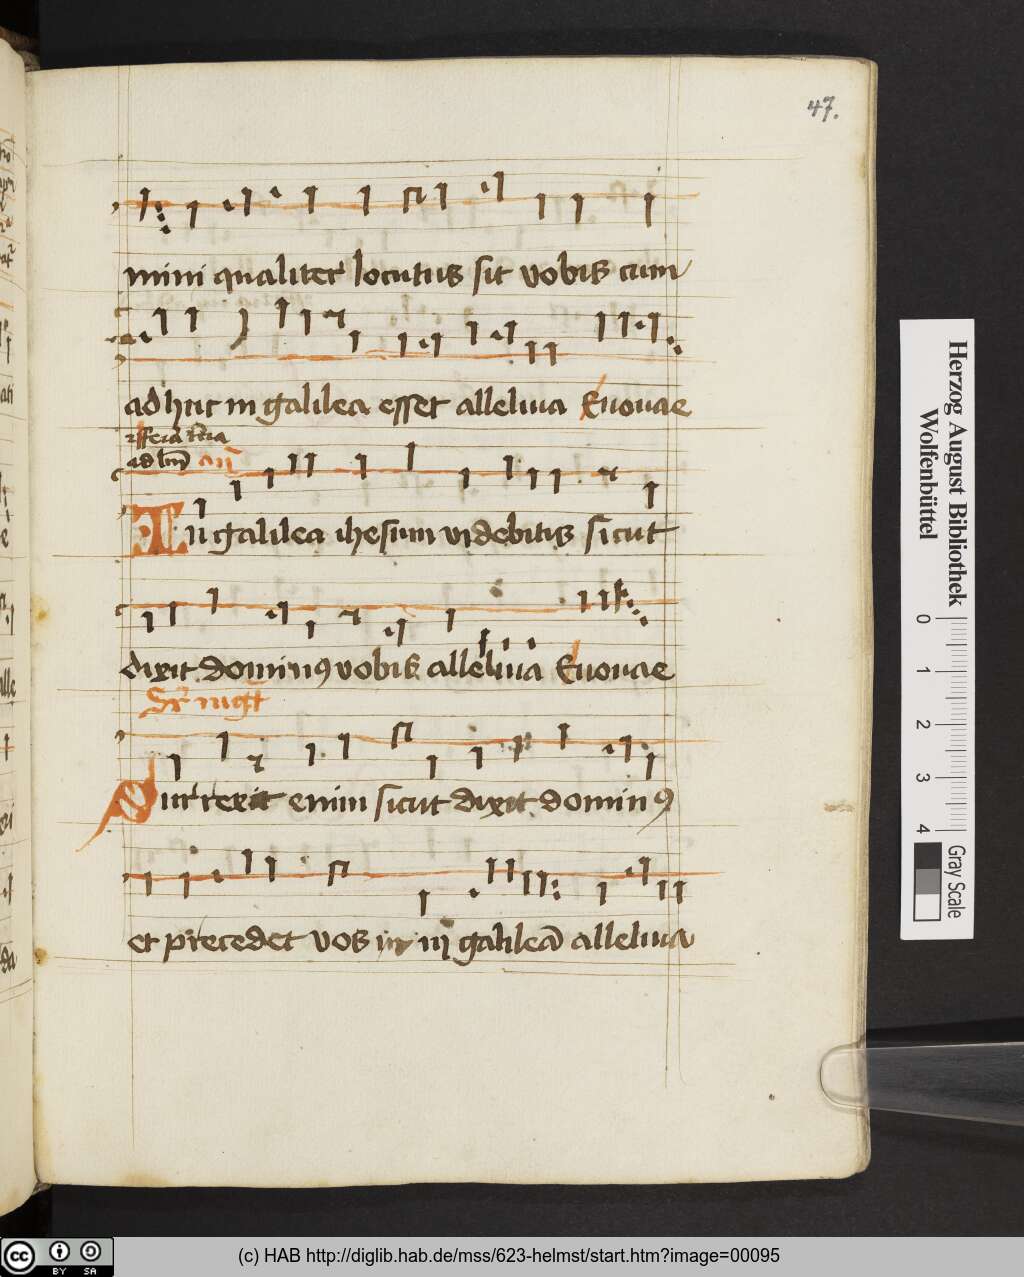 47.
mini qualiter locutus sit vobis cum
adhuc in galilea esset alleluia Euouae
feria
ad bn̄ añ
In galilea ihesum videbitis sicut
dixit dominꝰ vobis alleluia Euouae
Surrexit enim sicut dixit dominꝰ
et precedet vos in galileā alleluia
Herzog August Bibliothek
Wolfenbüttel
0 1 2 3 4
Gray Scale
cc BY SA
(c) HAB http://diglib.hab.de/mss/623-helmst/start.htm?image=00095